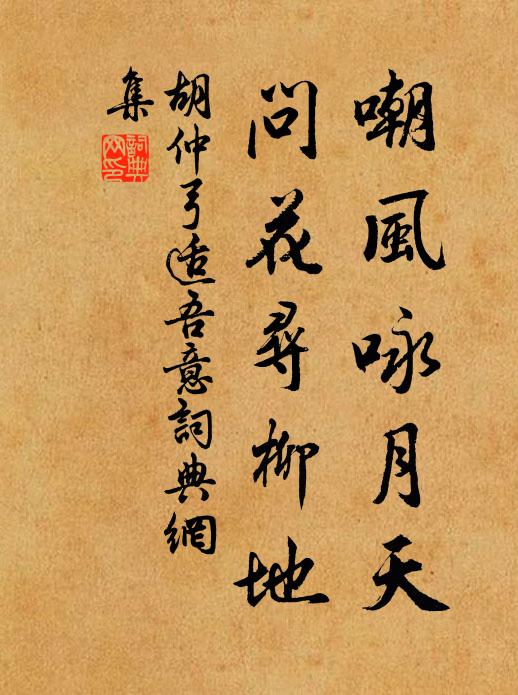 嘲風咏月天
問花尋柳地
胡仲弓適吾意詞典網
集
詞典
网印